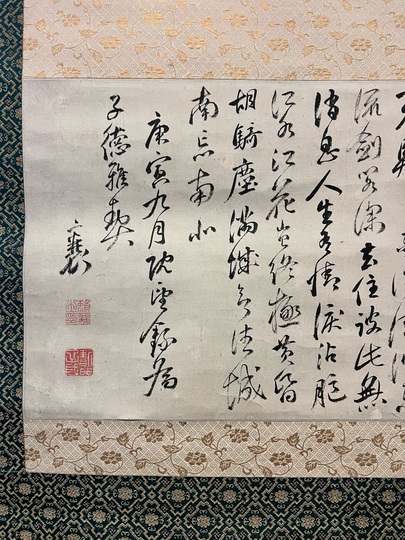 流劍閣深去住彼此無
消息人生有情淚沾臆
江水江花豈終極黃昏
胡騎塵滿城欲往城
南忘南北
庚寅九月既望錄為
子德雅契
襄